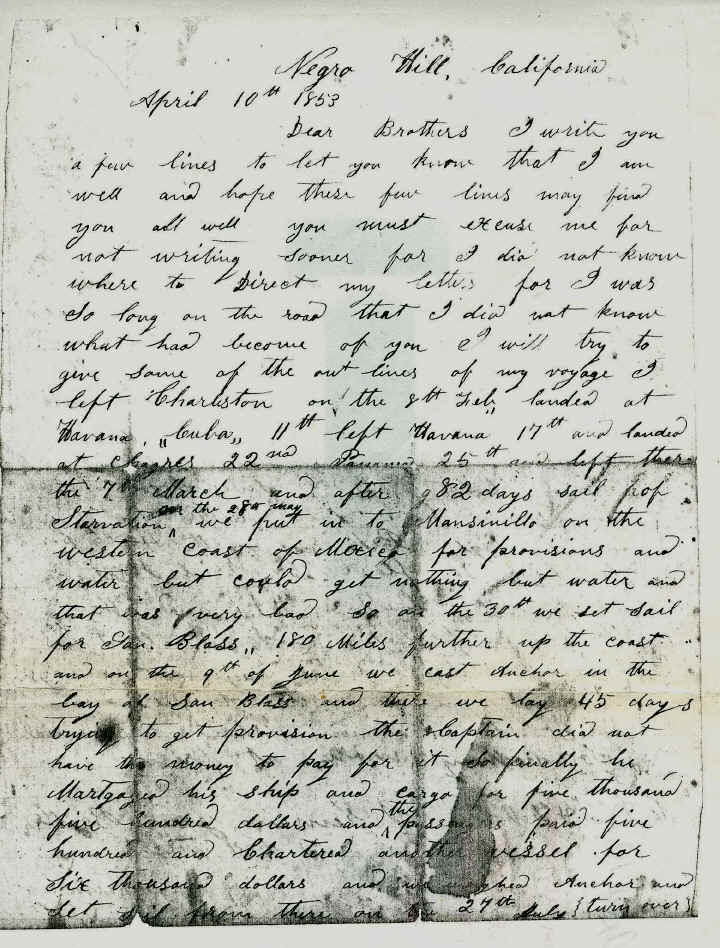 Negro Hill, California
April 10th 1853
Dear Brothers I write you
a few lines to let you know that I am
well and hope these few lines may find
you all well you must excuse me for
not writing sooner for I did not know
where to Direct my letters for I was
So long on the road that I did not know
what had become of you I will try to
give some of the out lines of my voyage I
left Charleston on the 8th Feb„ landed at
Havana, „Cuba„ 11th left Havana 17th and landed
at Chagres 22nd Panama 25th and left there
the 7th March and after 82 days sail
on the 28th may
Starvation we put in to Mansinillo on the
western coast of Mexico for provisions and
water but could get nothing but water and
that was very bad So on the 30th we set sail
for San. Blass„ 180 Miles further up the coast
and on the 9th of June we cast Anchor in the
bay of San Blass and there we lay 45 days
trying to get provision the Captain did not
have the money to pay for it So finally he
Martgaged his ship and cargo for five thousand
five hundred dollars and the passengers paid five
hundred and Chartered another vessel for
Six thousand dollars and we weighed Anchor and
Set sail from there on the 24th July {turn over}